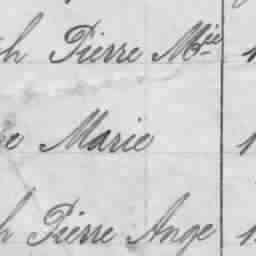 h Pierre Mie
e Marie
h Pierre Ange